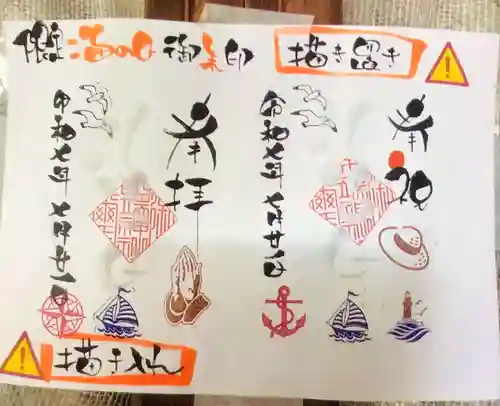 限定海の日御朱印
描き置き
奉祝
令和七年七月廿一日
奉拝
令和七年七月廿一日